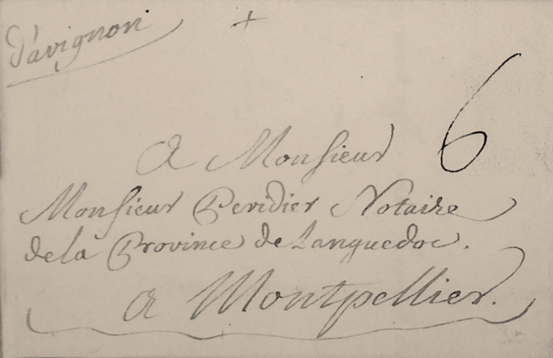 Davignon
+
6
A Monsieur
Monsieur Peridier Notaire
dela Province de Languedoc.
a Montpellier.